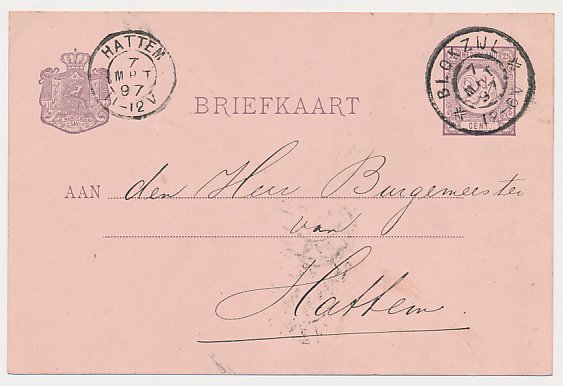 HATTEM
7
MRT
97
11-12V
BRIEFKAART
BLOKZIJL
7
MRT
97
CENT
AAN den Heer Burgemeester
van
Hattem